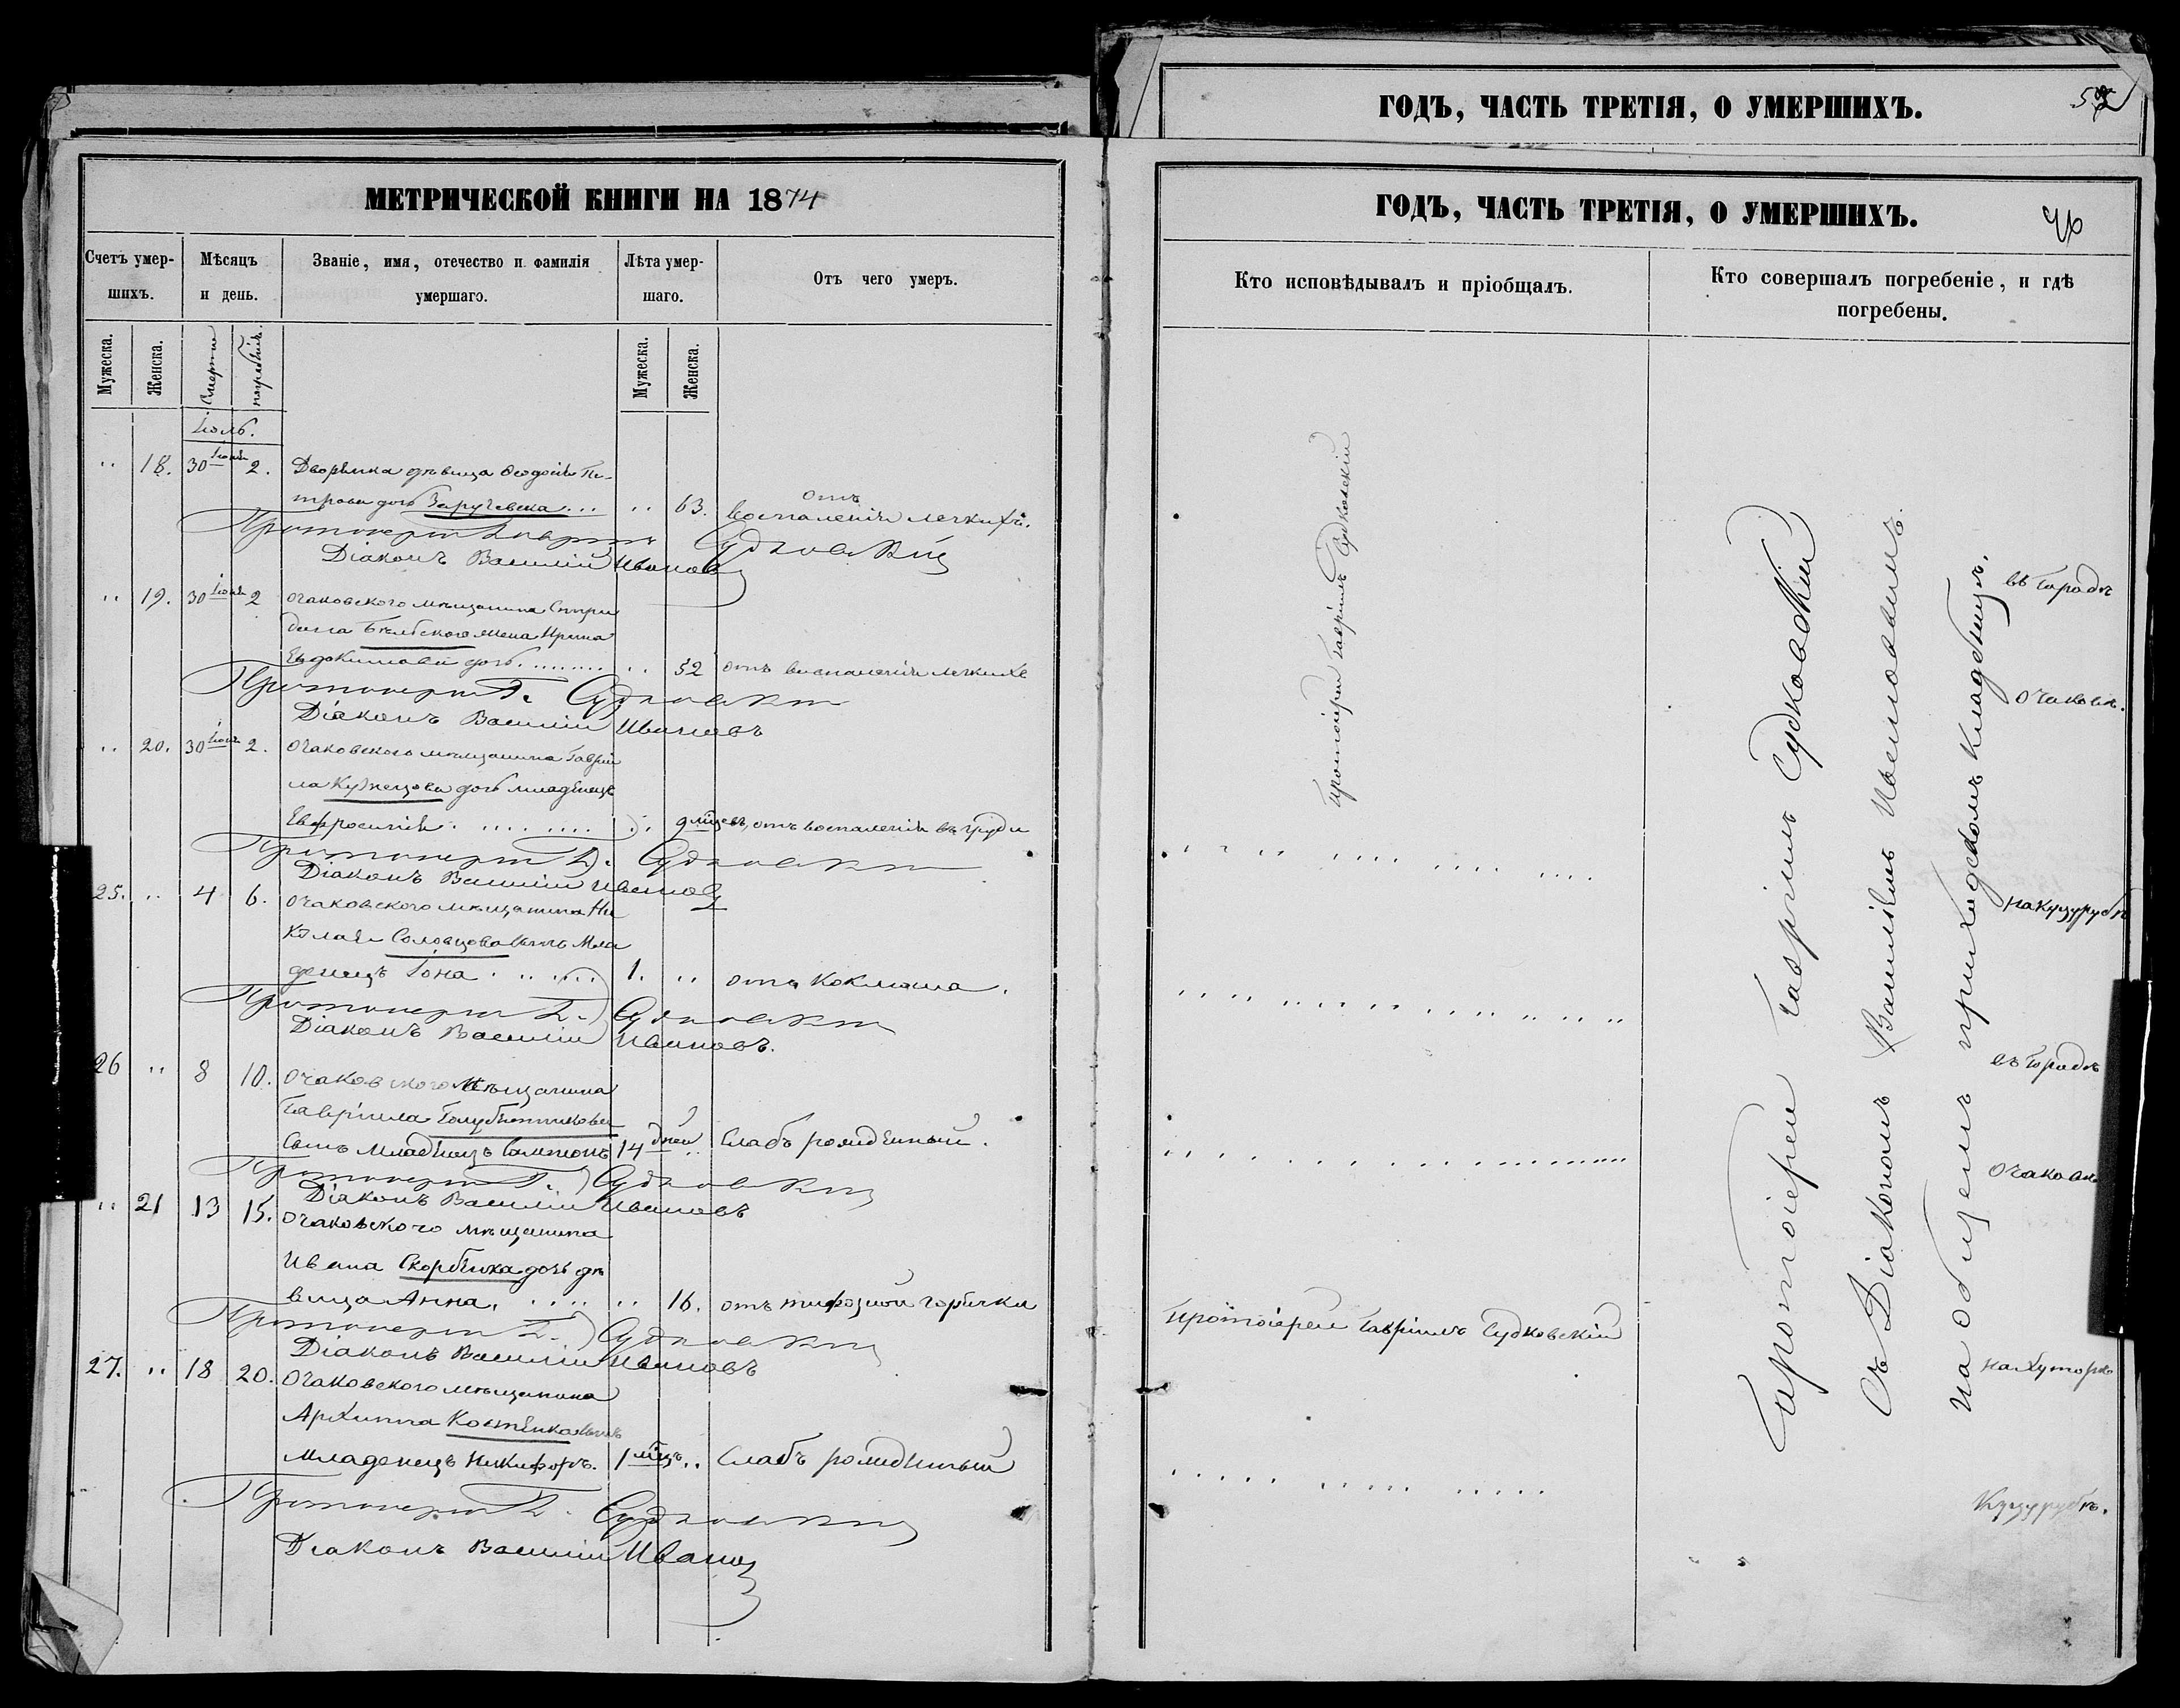 МЕТРИЧЕСКОЙ КНИГИ НА 1874
Счетъ умер-
шихъ.
Мѣсяцъ
и день.
Званіе, имя, отечество и фамилія
умершаго.
Лѣта умер-
шаго.
Отъ чего умеръ.
Мужеска.
Женска.
Смерти
погребенія.
Мужеска.
Женска.
Іюль.
" 18. 30 Іюня 2. Дворянка дѣвица Ѳеодосія Пе-
трова дочь Заручевска... " 63. отъ
воспаленія легкихъ.
Протоіерей Гавріилъ Судковскій
Діаконъ Василій Ивановъ
" 19. 30 Іюня 2 Очаковского мѣщанина Спири
дона Бѣльского жена Ирина
Евдокимова дочь......... " 52 отъ воспаленія легкихъ
Протоіерей Г. Судковскій
Діаконъ Василій Ивановъ
" 20. 30 Іюня 2. Очаковского мѣщанина Гаврiи
ла Кузнецова дочь младенецъ
Евфросинія......... " 9 мѣсцевъ, отъ воспаленія въ груди
Протоіерей Г. Судковскій
Діаконъ Василій Ивановъ
25. " 4 6. Очаковского мѣщанина Ни
колая Соловцова сынъ Мла
денецъ Іона...... 1. " отъ Коклюша.
Протоіерей Г. Судковскій
Діаконъ Василій Ивановъ.
26 " 8 10. Очаковского Мѣщанина
Гавріила Голубятникова
Сынъ Младенецъ Сампсонъ 14 дней " Слабъ рожденный.
Протоіерей Г. Судковскій
Діаконъ Василій Ивановъ
" 21 13 15. Очаковского мѣщанина
Ивана Скорбенка дочь дѣ
вица Анна...... " 16. отъ тифозной горячки
Протоіерей Г. Судковскій
Діаконъ Василій Ивановъ
27. " 18 20. Очаковского мѣщанина
Архиппа Костенка сынъ
Младенецъ Никифоръ. 1 мѣцъ " Слабъ рожденный
Протоіерей Г. Судковскій
Діаконъ Василій Ивановъ
ГОДЪ, ЧАСТЬ ТРЕТІЯ, О УМЕРШИХЪ.
ГОДЪ, ЧАСТЬ ТРЕТІЯ, О УМЕРШИХЪ.
Кто исповѣдывалъ и пріобщалъ.
Кто совершалъ погребеніе, и гдѣ
погребены.
Протоіерей Гавріилъ Судковскій
Протоіерей Гавріилъ Судковскій
Протоіерей Гавріилъ Судковскій
Съ Діакономъ Василіемъ Ивановымъ.
на общемъ приходскомъ кладбищѣ.
въ Городѣ
Очаковѣ.
на Куцурубѣ
въ Городѣ
Очаковѣ
на Хуторѣ
Куцурубѣ.